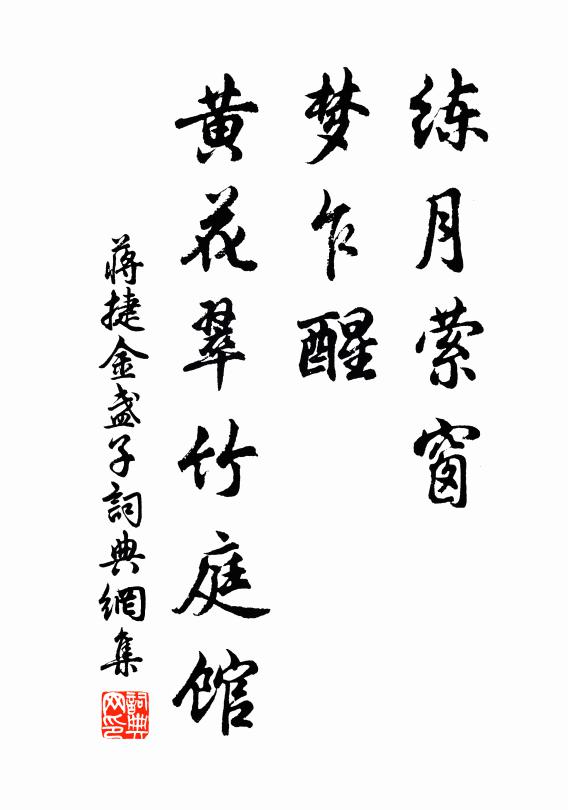 练月萦窗
梦乍醒
黄花翠竹庭馆
蒋捷金盏子詞典網集
詞典网印